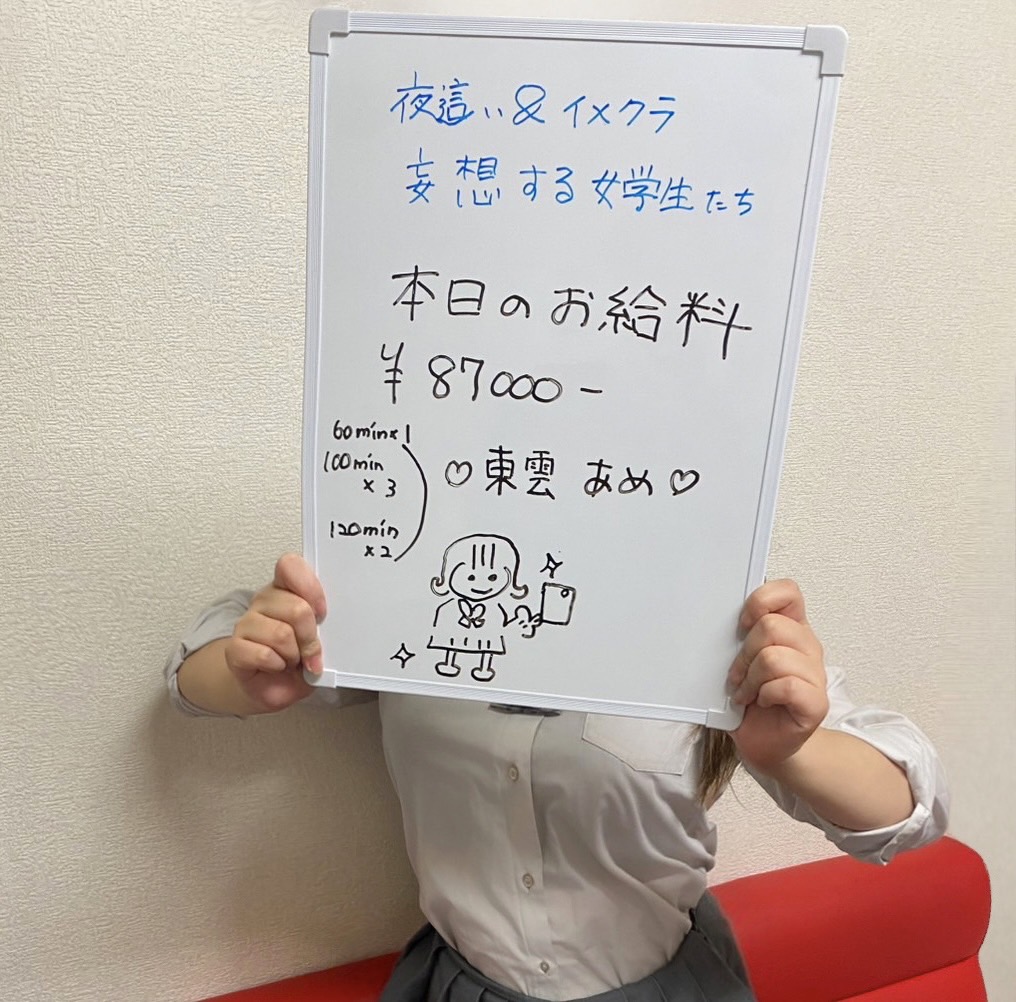 夜這い&イメクラ
妄想する女学生たち
本日のお給料
¥87000-
60min×1
100min
×3
120min
×2
♡東雲 あめ♡